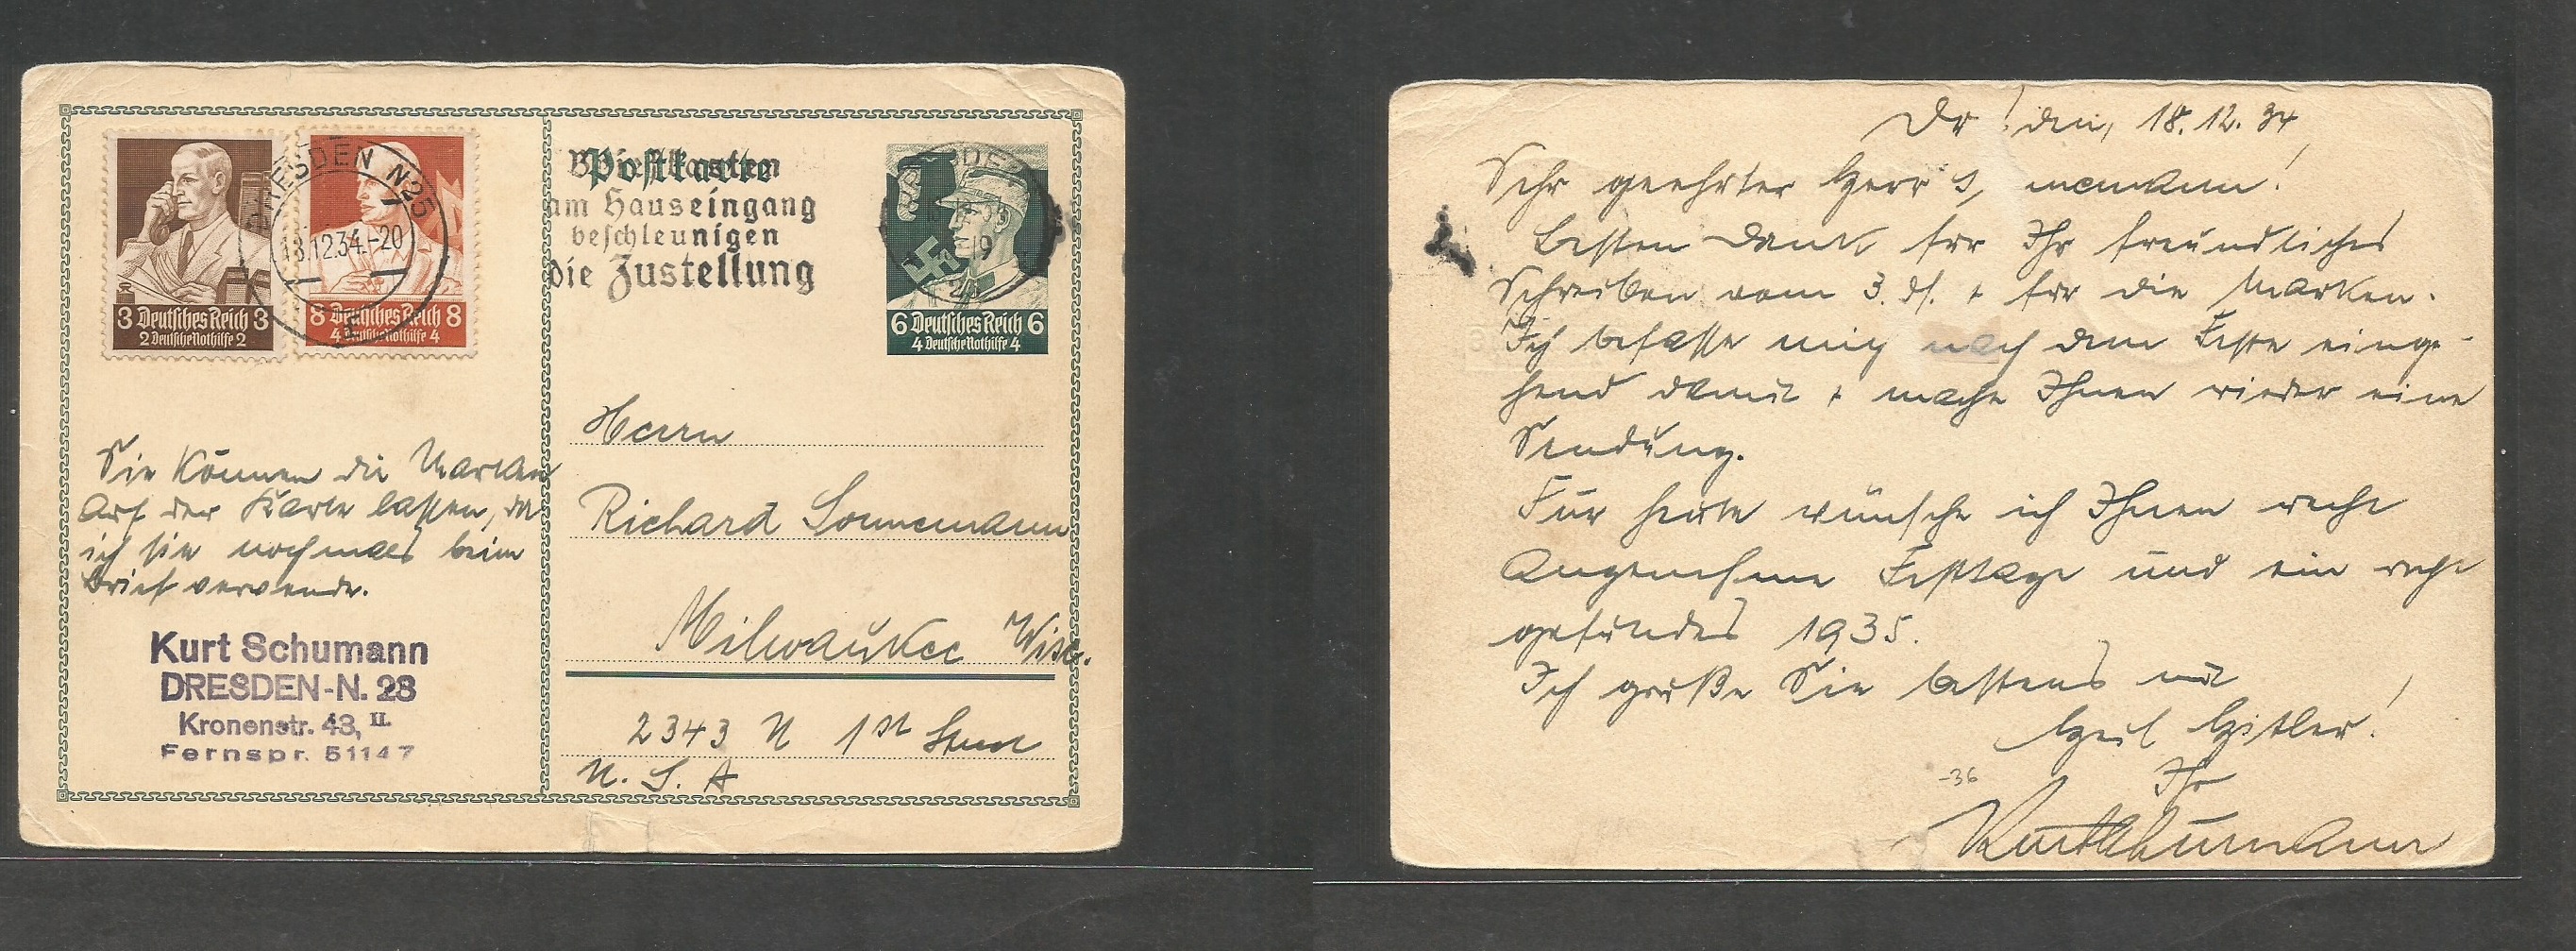 DRESDEN N25
18.12.34.-20
3 Deutsches Reich 3
2 Deutsche Nothilfe 2
8 Deutsches Reich 8
4 Deutsche Nothilfe 4
Postkarte
Briefkasten
am Hauseingang
beschleunigen
die Zustellung
6 Deutsches Reich 6
4 Deutsche Nothilfe 4
Sie können die Marken
auf der Karte lassen, da
ich sie nochmals beim
Brief verwende.
Kurt Schumann
DRESDEN-N. 28
Kronenstr. 43, II.
Fernspr. 51147
Herrn
Richard Sonnemann
Milwaukee Wisc.
2343 N 1st
U. S. A
18.12.34
Sehr geehrter Herr
Besten Dank für Ihr freundliches
Schreiben vom 3. ds. + für die Marken.
Ich befasse mich nach dem Feste einge-
hend damit + mache Ihnen wieder eine
Sendung.
Für heute wünsche ich Ihnen recht
angenehme Festtage und ein recht
gesundes 1935.
Ich grüße Sie bestens mit
Heil Hitler!
Ihr
Kurt Schumann
-36